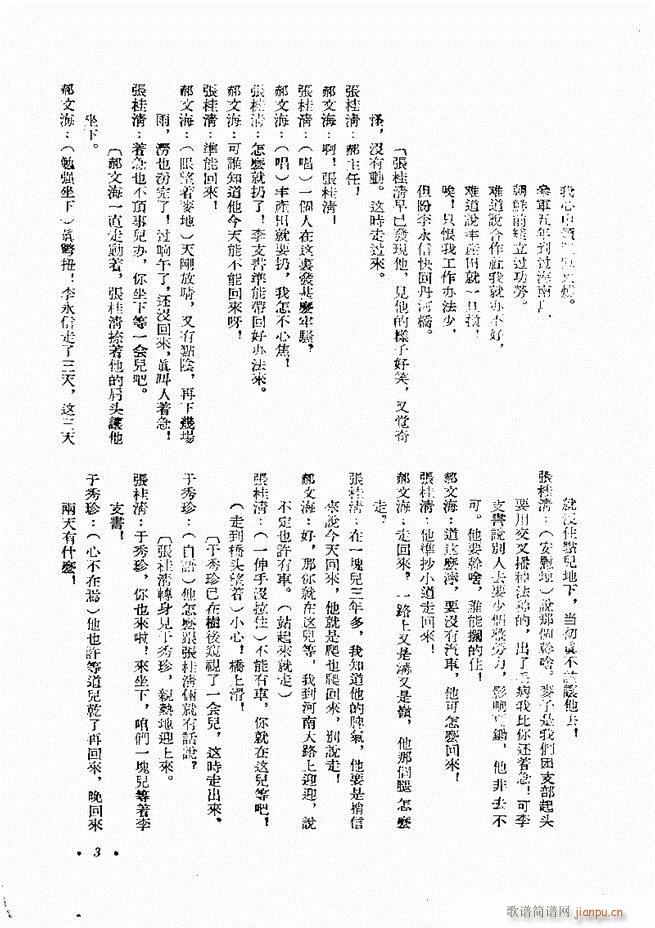 参軍五年到过海南島，
朝鮮前綫立过功劳。
难道說合作社我就办不好，
难道說丰産田就一旦
唉，只恨我工作办法少，
但盼李永信快回丹河橋。
〔張桂清早已發現他，見他的樣子好笑，又觉奇
怪，沒有動。这時走过来。
張桂清：郝主任！
郝文海：啊！張桂清！
張桂清：（唱）一個人在这裏發甚麼牢騷，
郝文海：（唱）丰產田就要扔，我怎不心焦！
張桂清：怎麼就扔了！李支書準能帶回好办法來。
郝文海：可誰知道他今天能不能回來呀！
張桂清：準能回來！
郝文海：（眼望着麥地）天剛放晴，又有點陰，再下幾場
雨，澇也澇完了！过晌午了，还沒回來，眞叫人着急！
張桂清：着急也不頂事兒办，你坐下等一会兒吧。
〔郝文海一直走動着，張桂清捺着他的肩头讓他
坐下。
郝文海：（勉强坐下）眞彆扭！李永信走了三天，这三天
就没住點兒地下，当初眞不該讓他去！
張桂清：（安慰地）說那個幹啥。麥子是我們团支部起头
要用交叉播种法种的，出了毛病我比你还着急！可李
支書說别人去要少個積劳力，影响鋤，他非去不
可。他要幹啥，誰能攔的住！
郝文海：道这麼濘，要沒有汽車，他可怎麼回來！
張桂清：他準抄小道走回來！
郝文海：走回來？一路上又是溝又是嶺，他那個腿怎麼
走。
張桂清：在一塊兒三年多，我知道他的脾氣，他要是捎信
來說今天回來，他就是爬也爬回來，别說走！
郝文海：好，那你就在这兒等，我到河南大路上迎迎，說
不定也許有車。（站起來就走）
張桂清：（一伸手沒拉住）不能有車，你就在这兒等吧！
（走到橋头望着）小心！橋上滑！
〔于秀珍已在樹後窺視了一会兒，这時走出來。
于秀珍：（自語）他怎麼跟張桂清倆就有話說？
〔張桂清轉身見于秀珍，親熱地迎上來。
張桂清：于秀珍，你也來啦！來坐下，咱們一塊兒等着李
支書！
于秀珍：（心不在焉）他也許等道兒乾了再回來，晚回來
兩天有什麼！
· 3 ·
歌谱简谱网
jianpu.cn